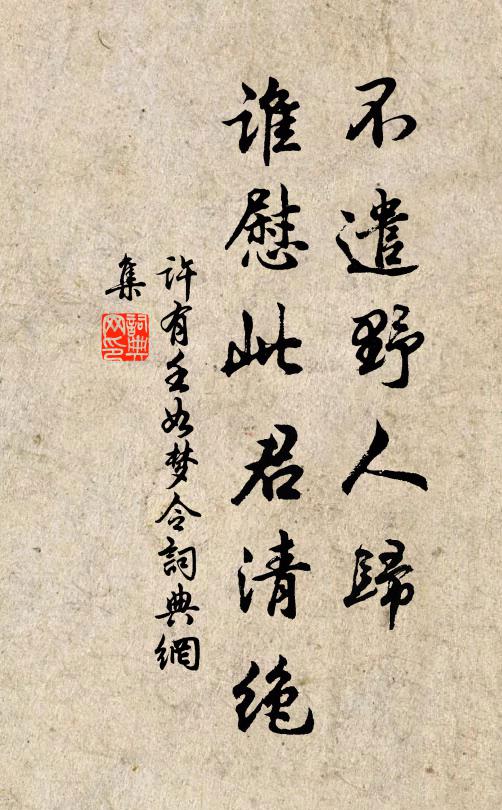 不遣野人歸
誰慰此君清絶
許有壬如梦令詞典網
集
詞典网印